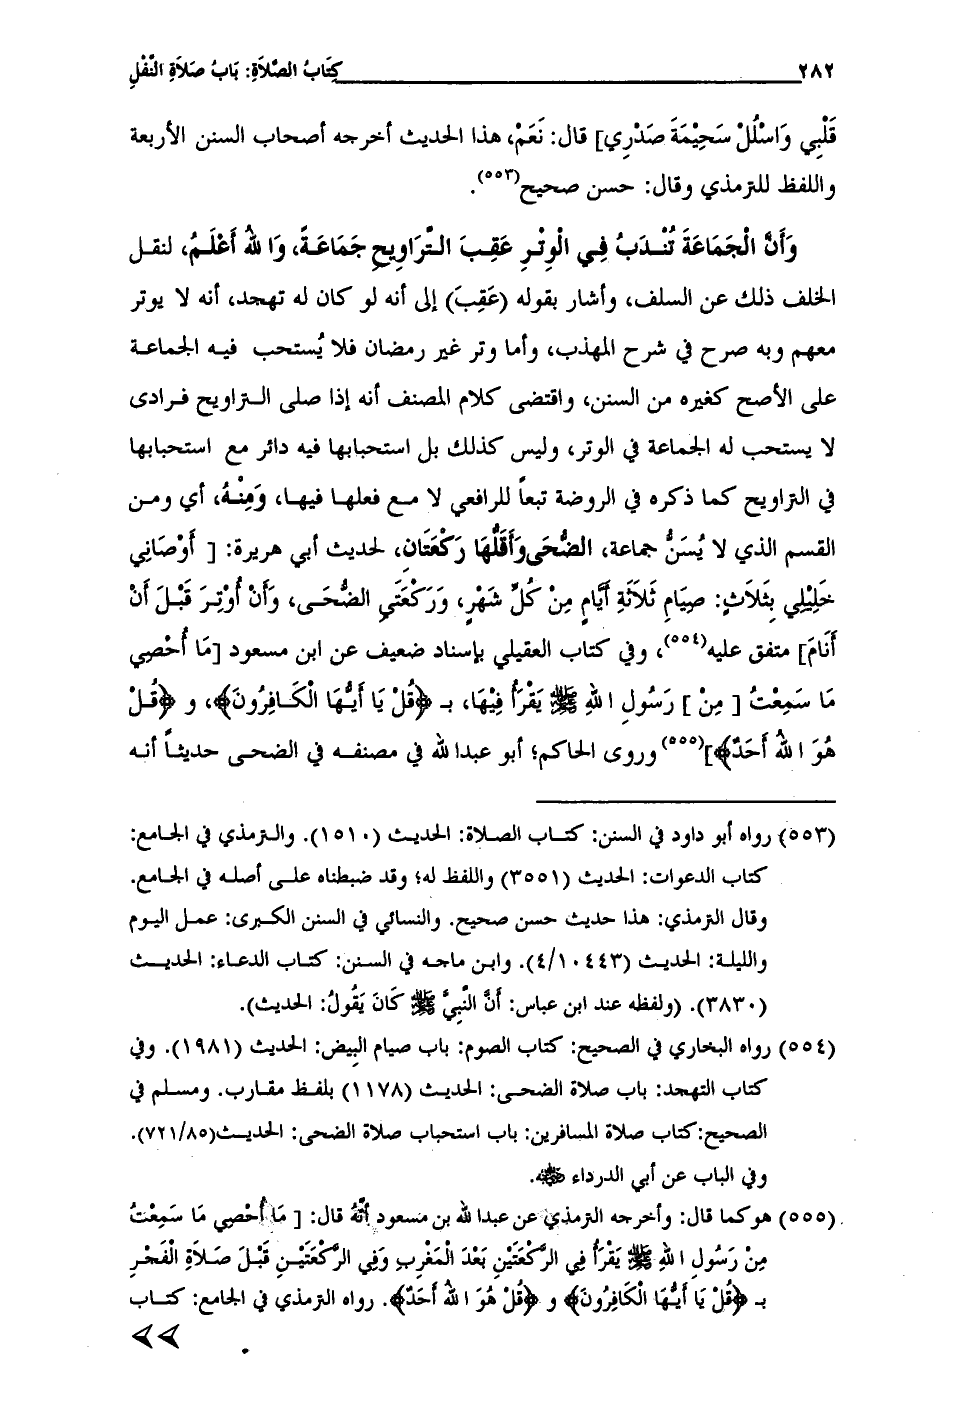 ٢٨٢ كِتَابُ الصَّلَاةِ: بَابُ صَلَاةِ النَّفْلِ
قَلْبِي وَاسْلُلْ سَحِيْمَةَ صَدْرِي] قال: نَعَمْ، هذا الحديث أخرجه أصحاب السنن الأربعة
واللفظ للترمذي وقال: حسن صحيح(٥٥٣).
وَأَنَّ الْجَمَاعَةَ تُنْدَبُ فِي الْوِتْرِ عَقِبَ التَّرَاوِيحِ جَمَاعَةً، وَا للهُ أَعْلَمُ، لنقل
الخلف ذلك عن السلف، وأشار بقوله (عَقِبَ) إلى أنه لو كان له تهجد، أنه لا يوتر
معهم وبه صرح في شرح المهذب، وأما وتر غير رمضان فلا يُستحب فيه الجماعة
على الأصح كغيره من السنن، واقتضى كلام المصنف أنه إذا صلى التراويح فرادى
لا يستحب له الجماعة في الوتر، وليس كذلك بل استحبابها فيه دائر مع استحبابها
في التراويح كما ذكره في الروضة تبعاً للرافعي لا مع فعلها فيها، وَمِنْهُ، أي ومن
القسم الذي لا يُسَنُّ جماعة، الضُّحَى وَأَقَلُّهَا رَكْعَتَانِ، لحديث أبي هريرة: [ أَوْصَانِي
خَلِيْلِي بِثَلَاثٍ: صِيَامِ ثَلَاثَةِ أَيَّامٍ مِنْ كُلِّ شَهْرٍ، وَرَكْعَتَيِ الضُّحَى، وَأَنْ أُوْتِرَ قَبْلَ أَنْ
أَنَامَ] متفق عليه(٥٥٤)، وفي كتاب العقيلي بإسناد ضعيف عن ابن مسعود [مَا أُحْصِي
مَا سَمِعْتُ [ مِنْ ] رَسُولِ ا للهِ ﷺ يَقْرَأُ فِيْهَا، بـ ﴿قُلْ يَا أَيُّهَا الْكَافِرُونَ﴾، و ﴿قُلْ
هُوَ ا للهُ أَحَدٌ﴾](٥٥٥) وروى الحاكم؛ أبو عبدا لله في مصنفه في الضحى حديثاً أنه
(٥٥٣) رواه أبو داود في السنن: كتاب الصلاة: الحديث (١٥١٠). والترمذي في الجامع:
كتاب الدعوات: الحديث (٣٥٥١) واللفظ له؛ وقد ضبطناه على أصله في الجامع.
وقال الترمذي: هذا حديث حسن صحيح. والنسائي في السنن الكبرى: عمل اليوم
والليلة: الحديث (٤/١٠٤٤٣). وابن ماجه في السنن: كتاب الدعاء: الحديث
(٣٨٣٠). (ولفظه عند ابن عباس: أَنَّ النَّبِيَّ ﷺ كَانَ يَقُولُ: الحديث).
(٥٥٤) رواه البخاري في الصحيح: كتاب الصوم: باب صيام البيض: الحديث (١٩٨١). وفي
كتاب التهجد: باب صلاة الضحى: الحديث (١١٧٨) بلفظ مقارب. ومسلم في
الصحيح:كتاب صلاة المسافرين: باب استحباب صلاة الضحى: الحديث(٧٢١/٨٥).
وفي الباب عن أبي الدرداء ﷺ.
(٥٥٥) هو كما قال: وأخرجه الترمذي عن عبدا لله بن مسعود أَنَّهُ قال: [ مَا أُحْصِي مَا سَمِعْتُ
مِنْ رَسُولِ ا للهِ ﷺ يَقْرَأُ فِي الرَّكْعَتَيْنِ بَعْدَ الْمَغْرِبِ وَفِي الرَّكْعَتَيْنِ قَبْلَ صَلَاةِ الْفَجْرِ
بـ ﴿قُلْ يَا أَيُّهَا الْكَافِرُونَ﴾ و ﴿قُلْ هُوَ ا للهُ أَحَدٌ﴾. رواه الترمذي في الجامع: كتاب